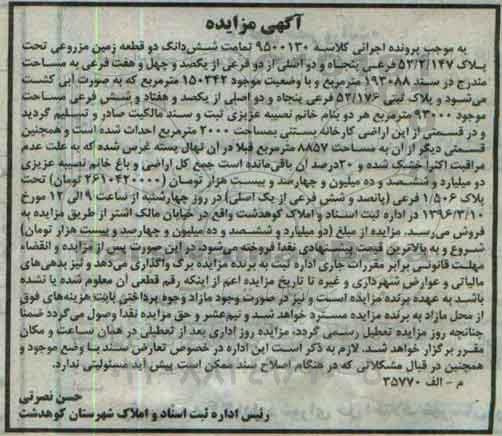 آگهی مزایده
به موجب پرونده اجرائی کلاسه ۹۵۰۰۱۳۰ تمامت شش‌دانگ دو قطعه زمین مزروعی تحت
پلاک ۵۲/۲/۱۴۷ فرعی پنجاه و دو اصلی از دو فرعی از یکصد و چهل و هفت فرعی به مساحت
مندرج در سند ۱۹۳۰۸۸ مترمربع و با وضعیت موجود ۱۵۰۳۴۲ مترمربع که به صورت آبی کشت
می‌شود و پلاک ثبتی ۵۲/۱۷۶ فرعی پنجاه و دو اصلی از یکصد و هفتاد و شش فرعی مساحت
موجود ۹۳۰۰۰ مترمربع هر دو بنام خانم نصیبه عزیزی ثبت و سند مالکیت صادر و تسلیم گردید
و در قسمتی از این اراضی کارخانه بستنی بمساحت ۲۰۰۰ مترمربع احداث شده است و همچنین
قسمتی دیگر از آن به مساحت ۸۸۵۷ مترمربع قبلا در آن نهال پسته غرس شده که به علت عدم
مراقبت اکثرا خشک شده و ۲۰درصد آن باقی‌مانده است جمع کل اراضی و باغ خانم نصیبه عزیزی
دو میلیارد و ششصد و ده میلیون و چهارصد و بیست هزار تومان (۲۶۱۰۴۲۰۰۰۰ تومان) تحت
پلاک ۱/۵۰۶ فرعی (پانصد و شش فرعی از یک اصلی) در روز چهارشنبه از ساعت ۹ الی ۱۲ مورخ
۱۳۹۶/۳/۱۰ در اداره ثبت اسناد و املاک کوهدشت واقع در خیابان مالک اشتر از طریق مزایده به
فروش می‌رسد. مزایده از مبلغ (دو میلیارد و ششصد و ده میلیون و چهارصد و بیست هزار تومان)
شروع و به بالاترین قیمت پیشنهادی نقدا فروخته می‌شود، در این صورت پس از مزایده و انقضاء
مهلت قانونی برابر مقررات جاری اداره ثبت به برنده مزایده برگ واگذاری می‌دهد و نیز بدهی‌های
مالیاتی و عوارض شهرداری و غیره تا تاریخ مزایده اعم از اینکه رقم قطعی آن معلوم شده یا نشده
باشد به عهده برنده مزایده است و نیز در صورت وجود مازاد وجوه پرداختی بابت هزینه‌های فوق
از محل مازاد به برنده مزایده مسترد خواهد شد و نیم‌عشر و حق مزایده نقدا وصول می‌گردد ضمنا
چنانچه روز مزایده تعطیل رسمی گردد، مزایده روز اداری بعد از تعطیلی در همان ساعت و مکان
مقرر برگزار خواهد شد. لازم به ذکر است این اداره در خصوص تعارض سند با وضع موجود و
همچنین در قبال مشکلاتی که در هنگام اصلاح سند ممکن است پیش آید مسئولیتی ندارد.
م - الف ۳۵۷۷۰
حسن نصرتی
رئیس اداره ثبت اسناد و املاک شهرستان کوهدشت